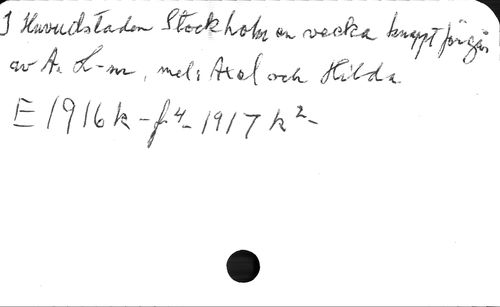 I Huvudstaden Stockholm en vecka knappt förgår
av A. L-m, mel: Axel och Hilda
E 1916 k - f 4 - 1917 k 2 -